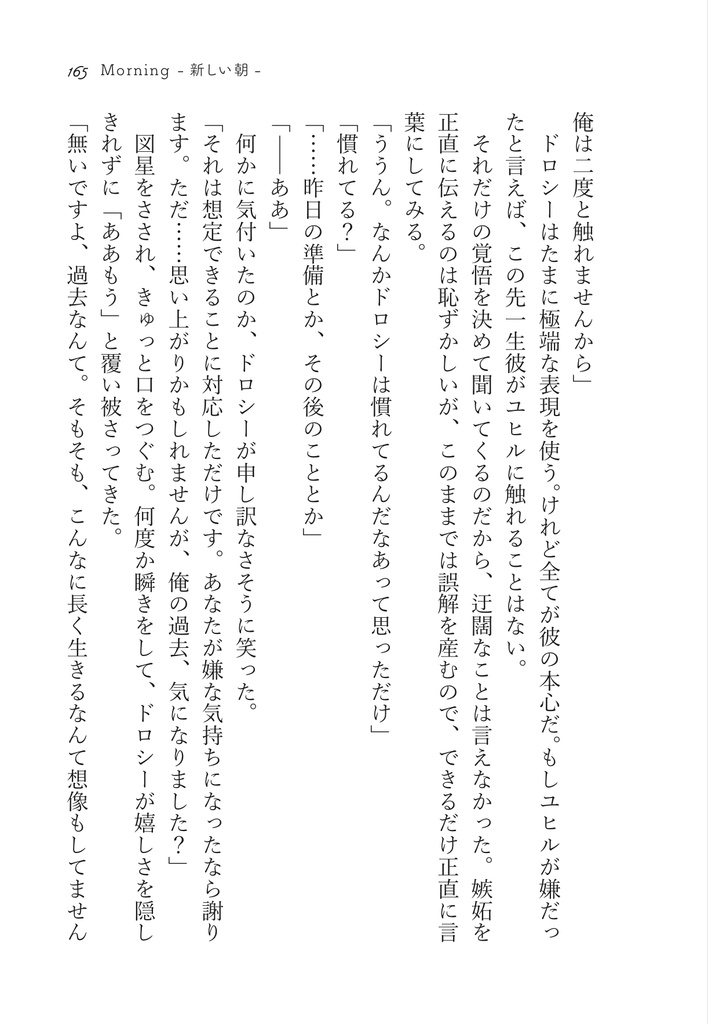 165 Morning - 新しい朝 -
俺は二度と触れませんから」
ドロシーはたまに極端な表現を使う。けれど全てが彼の本心だ。もしユヒルが嫌だっ
たと言えば、この先一生彼がユヒルに触れることはない。
それだけの覚悟を決めて聞いてくるのだから、迂闊なことは言えなかった。嫉妬を
正直に伝えるのは恥ずかしいが、このままでは誤解を産むので、できるだけ正直に言
葉にしてみる。
「ううん。なんかドロシーは慣れてるんだなあって思っただけ」
「慣れてる？」
「……昨日の準備とか、その後のこととか」
「――ああ」
何かに気付いたのか、ドロシーが申し訳なさそうに笑った。
「それは想定できることに対応しただけです。あなたが嫌な気持ちになったなら謝り
ます。ただ……思い上がりかもしれませんが、俺の過去、気になりました？」
図星をさされ、きゅっと口をつぐむ。何度か瞬きをして、ドロシーが嬉しさを隠し
きれずに「ああもう」と覆い被さってきた。
「無いですよ、過去なんて。そもそも、こんなに長く生きるなんて想像もしてません